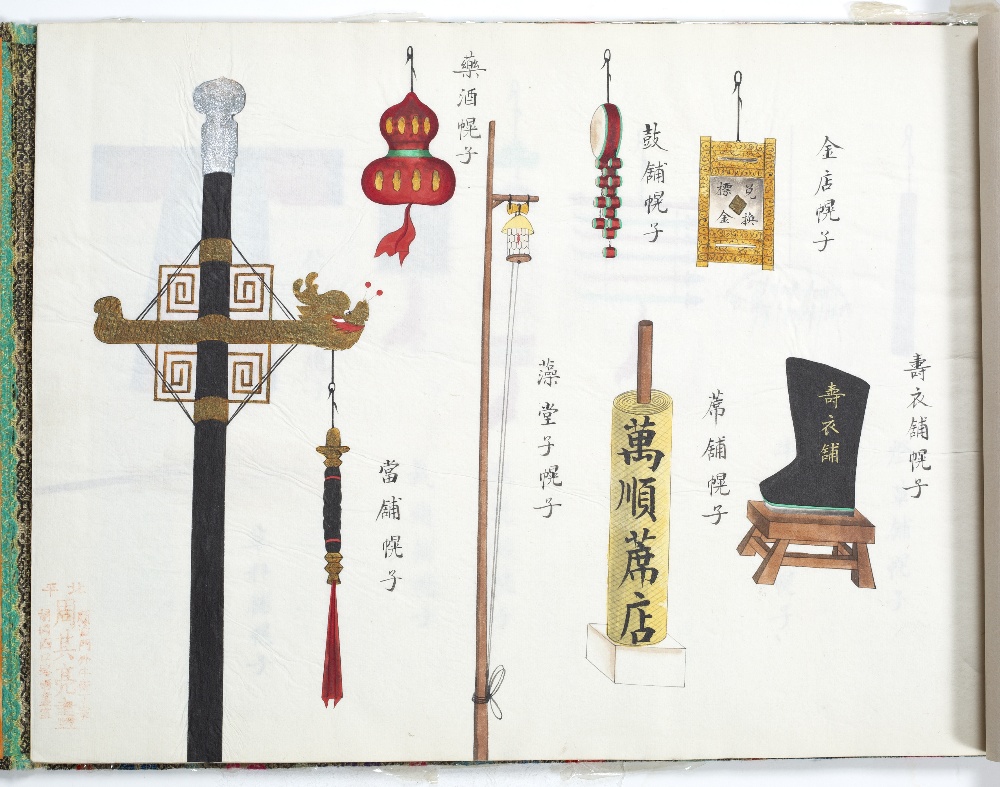 金店幌子
兌換
標金
壽衣舖幌子
壽衣舖
鼓舖幌子
蓆舖幌子
萬順蓆店
藥酒幌子
藻堂子幌子
當舖幌子
北平